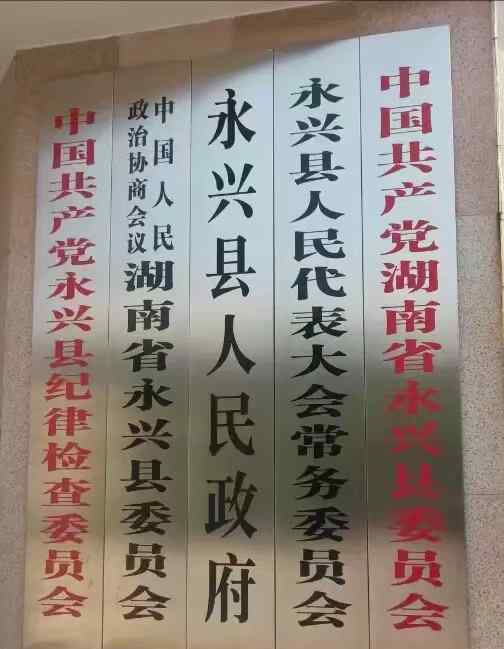 中国共产党湖南省永兴县委员会
永兴县人民代表大会常务委员会
永兴县人民政府
中国人民
政治协商会议
湖南省永兴县委员会
中国共产党永兴县纪律检查委员会